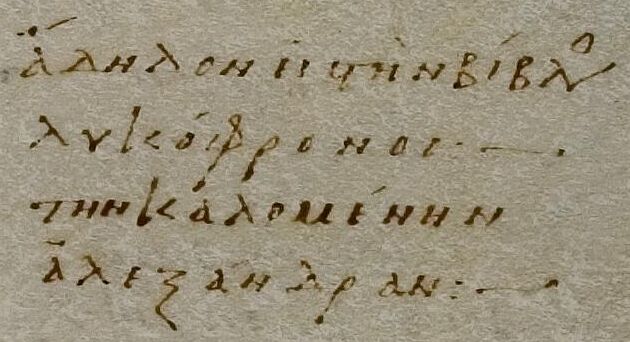 ἄδηλον εἰς τὴν βίβλο
λυκόφρονος · — .
την κάλομένην
ἀλεξάνδραν : — ·